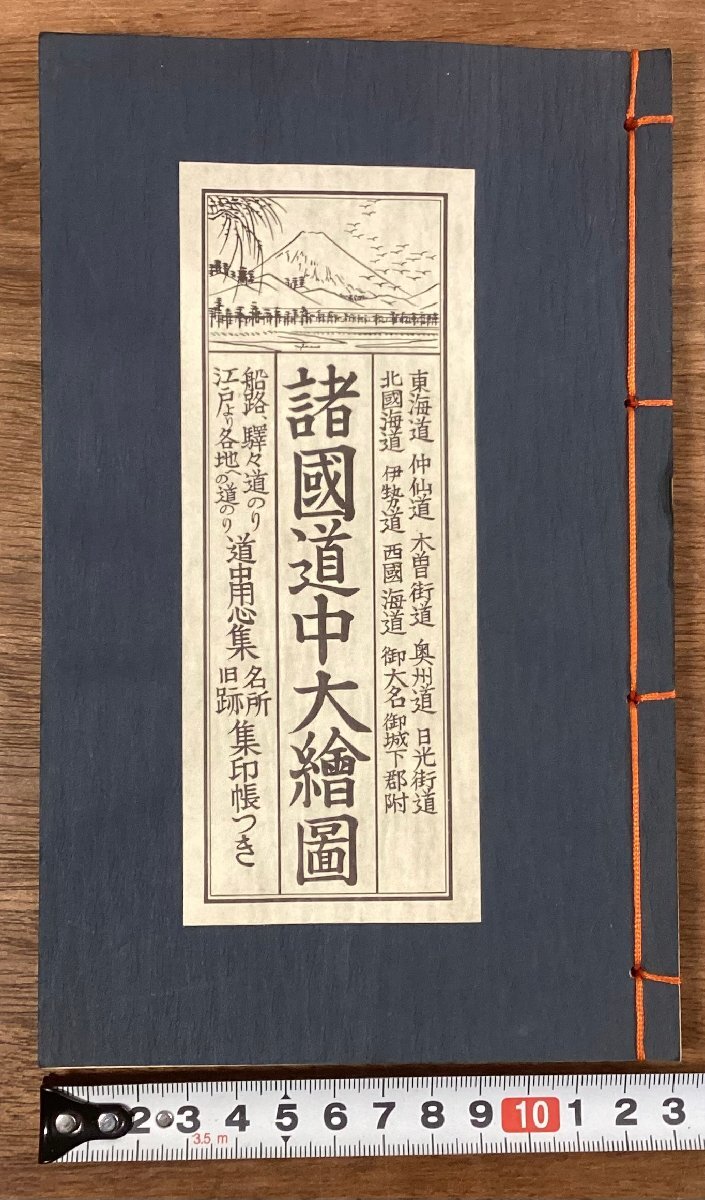 東海道 仲仙道 木曽街道 奥州道 日光街道
北國海道 伊勢道 西國海道 御大名御城下郡附
諸國道中大繪圖
船路、驛々道のり
江戸より各地への道のり、
道中用心集
名所
旧跡
集印帳つき
2 3 4 5 6 7 8 9 10 1 2 3
3.5 m